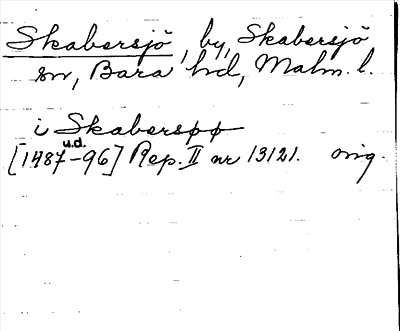 Skabersjö, by, Skabersjö
sn, Bara hd, Malm. l.
i Skaberspø
[1487 u.d. -96] Rep. II nr 13121. orig.